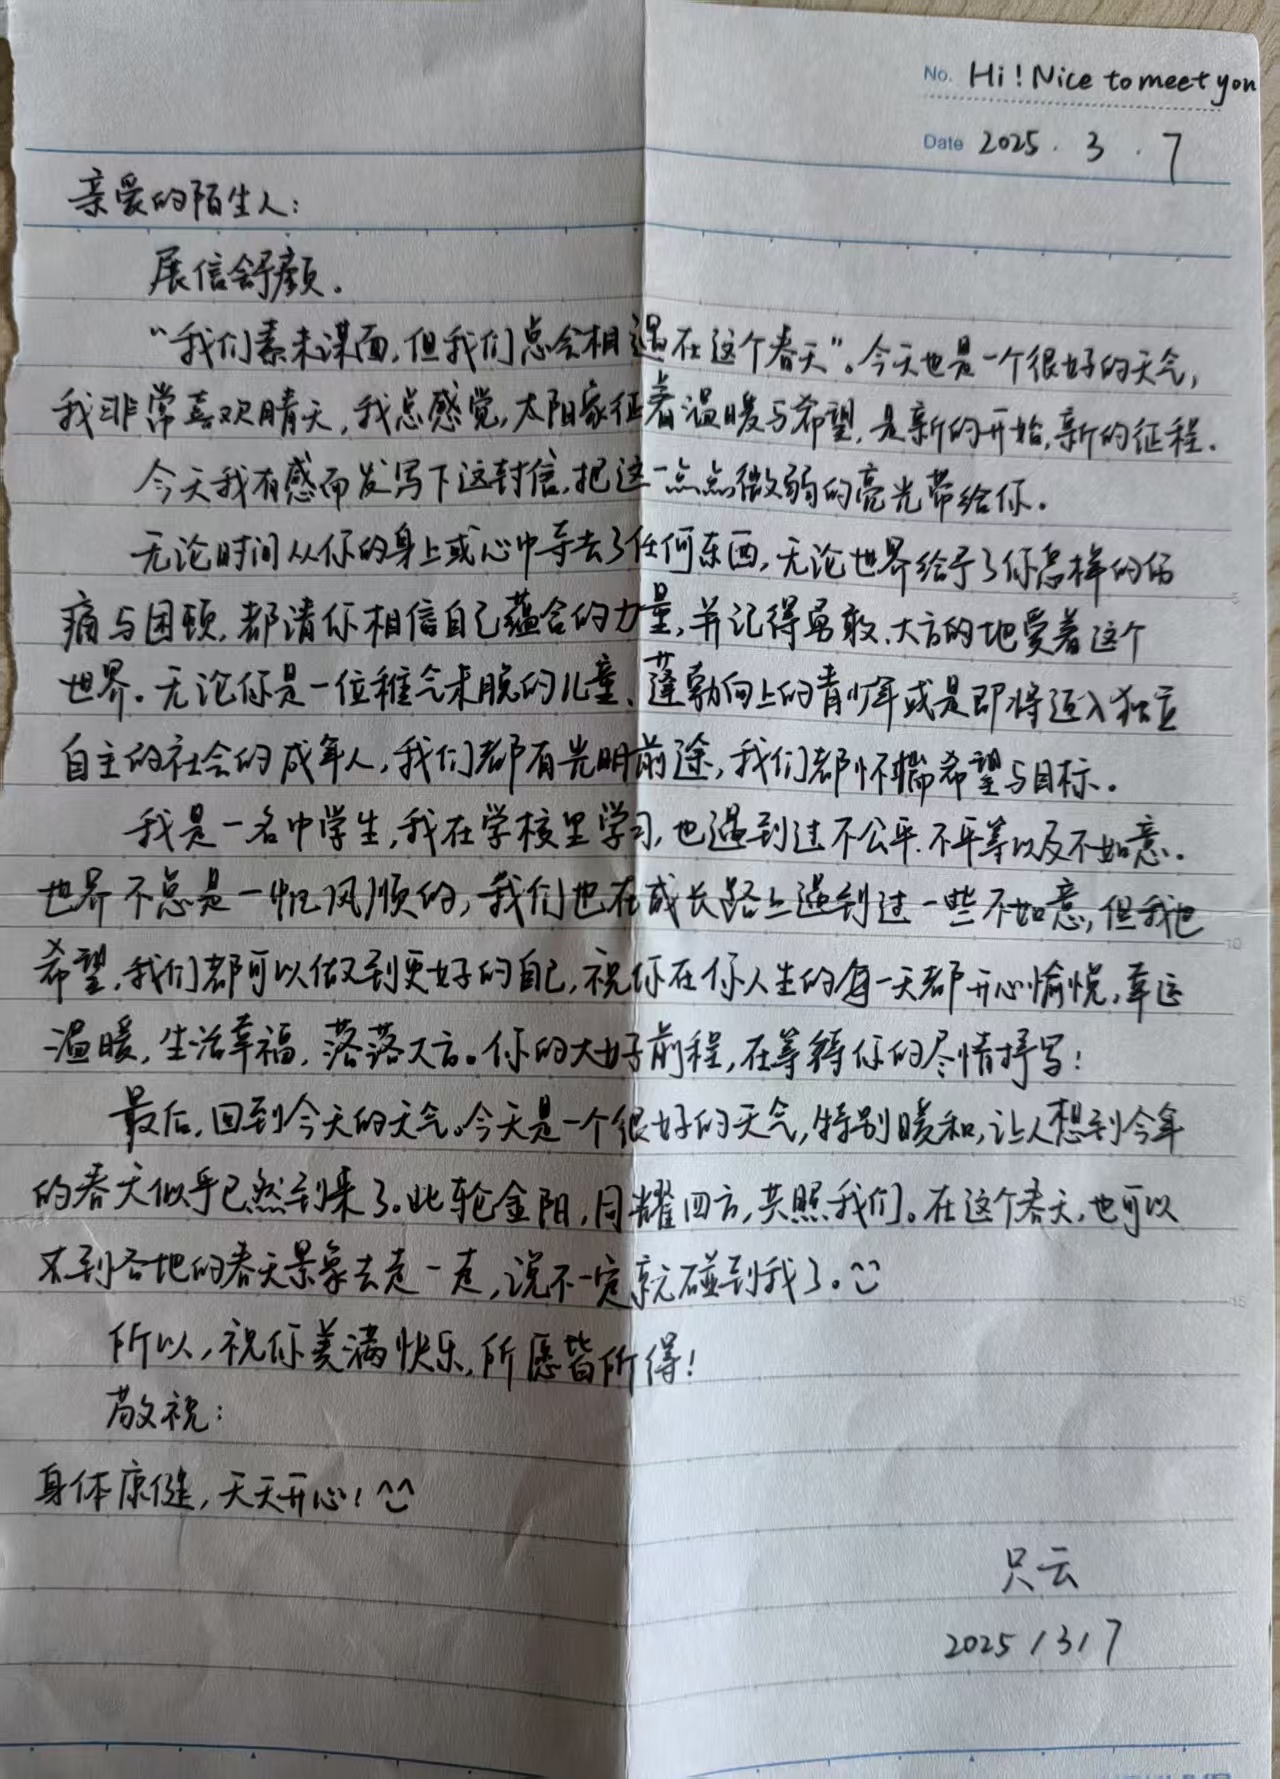 No. Hi! Nice to meet you
Date 2025.3.7
亲爱的陌生人：
展信舒颜。
“我们素未谋面，但我们总会相遇在这个春天”。今天也是一个很好的天气，
我非常喜欢晴天，我总感觉，太阳象征着温暖与希望，是新的开始，新的征程。
今天我有感而发写下这封信，把这一点点微弱的亮光带给你。
无论时间从你的身上或心中夺去了任何东西，无论世界给予了你怎样的伤
痛与困顿，都请你相信自己蕴含的力量，并记得勇敢、大方的地爱着这个
世界。无论你是一位稚气未脱的儿童、蓬勃向上的青少年或是即将迈入独立
自主的社会的成年人，我们都有光明前途，我们都怀揣希望与目标。
我是一名中学生，我在学校里学习，也遇到过不公平、不平等以及不如意。
世界不总是一帆风顺的，我们也在成长路上遇到过一些不如意，但我也
希望，我们都可以做到更好的自己，祝你在你人生的每一天都开心愉悦，幸运
温暖，生活幸福，落落大方。你的大好前程，在等待你的尽情抒写！
最后，回到今天的天气。今天是一个很好的天气，特别暖和，让人想到今年
的春天似乎已然到来了。此轮金阳，同耀四方，共照我们。在这个春天，也可以
来到各地的春天景象去走一走，说不一定就碰到我了。^^
所以，祝你美满快乐，所愿皆所得！
敬祝：
身体康健，天天开心！^^
只云
2025/3/7